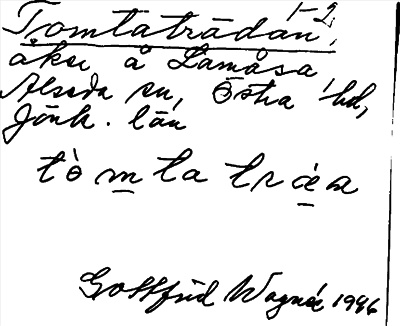 1-2,
Tomtaträdan,
åker å Lamåsa
Alseda sn, Östra hd,
Jönk. län
tò m ta träa
Gottfrid Wagnér 1946